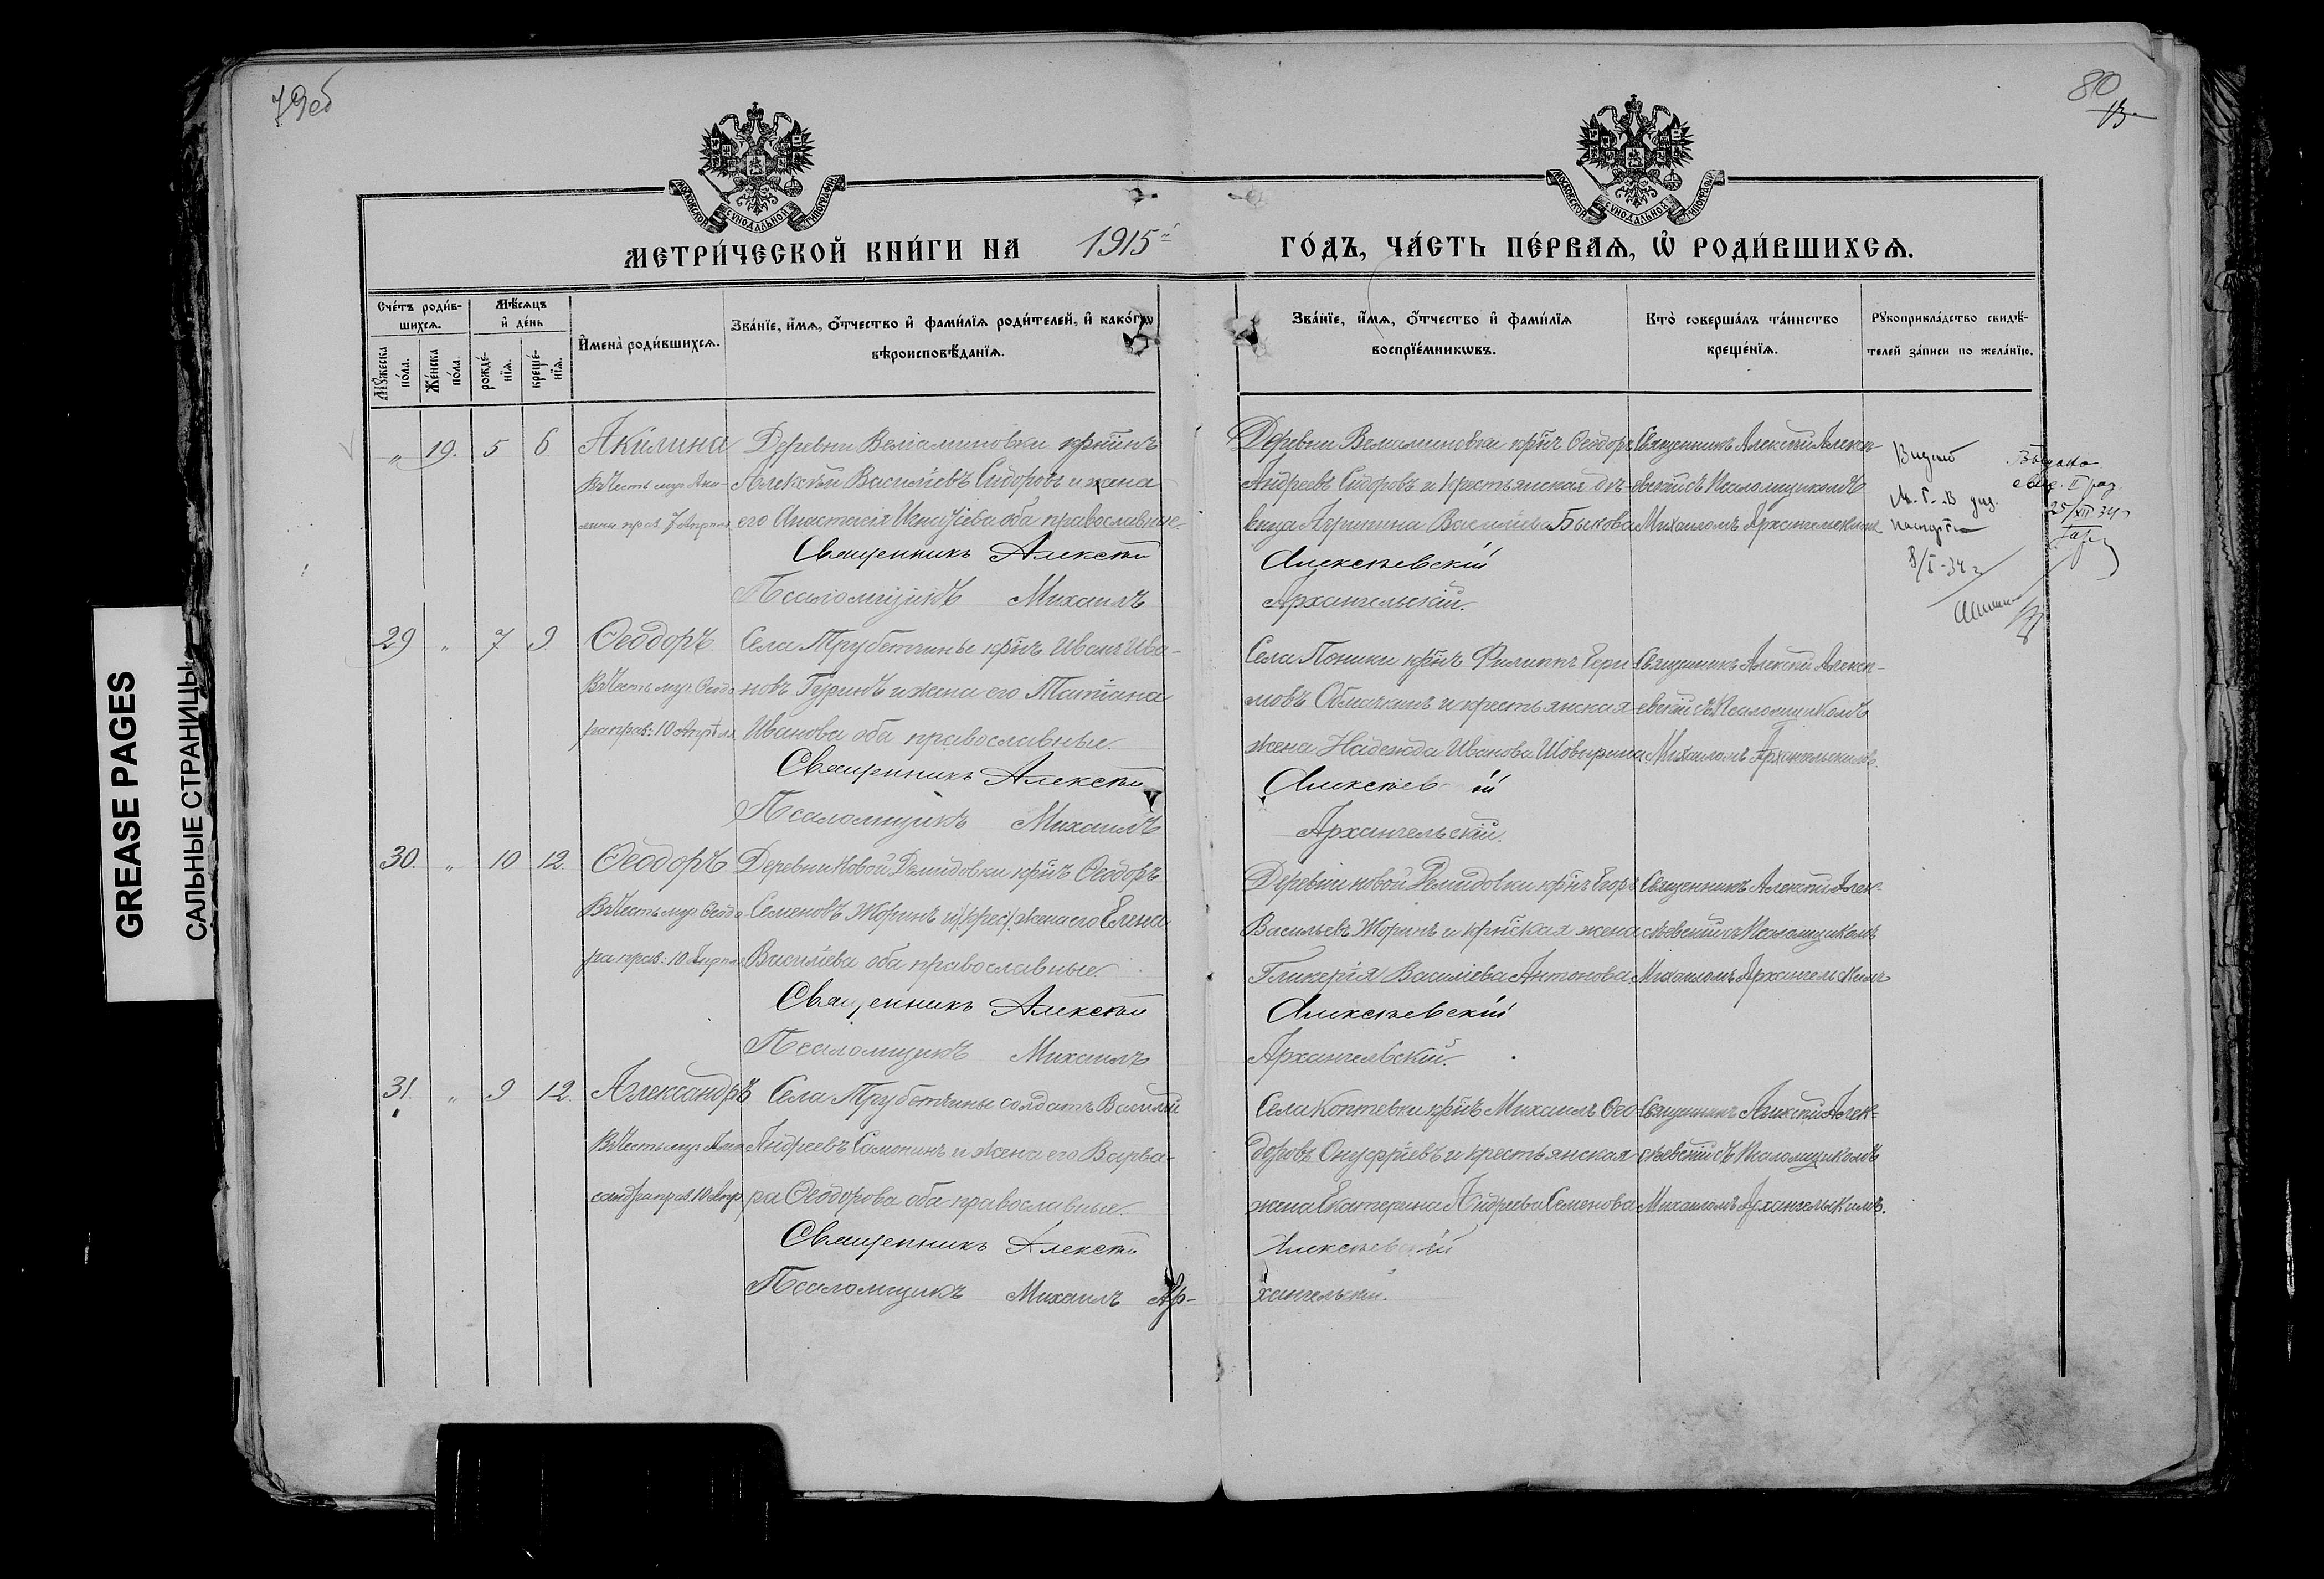 79об
80
13
МОСКОВСКОЙ СѴНОДАЛЬНОЙ ТИПОГРАФІИ
МОСКОВСКОЙ СѴНОДАЛЬНОЙ ТИПОГРАФІИ
МЕТРИ́ЧЕСКОЙ КНИ́ГИ НА 1915й ГО́ДЪ, ЧА́СТЬ ПЕ́РВАѦ, Ѽ РОДИ́ВШИХСѦ.
Сче́тъ роди́в-
шихсѧ.
Мꙋ́жеска по́ла.
Же́нска по́ла.
Мѣ́сѧцъ
и҆ де́нь
рожде́-
нїѧ.
креще́-
нїѧ.
И҆мена̀ роди́вшихсѧ.
Зва́нїе, и҆́мѧ, ѻ҆́тчество и҆ фами́лїѧ роди́телей, и҆ како́гѡ
вѣроисповѣ́данїѧ.
Зва́нїе, и҆́мѧ, ѻ҆́тчество и҆ фами́лїѧ
воспрїе́мникѡвъ.
Кто̀ соверша́лъ та́инство
креще́нїѧ.
Рꙋкоприкла́дство свидѣ́-
телей за́писи по жела́нїю.
„ 19. 5 6 Акилина
Въ честь муч. Аки-
лины праз. 7 Апрѣля
Деревни Веліаминовки кр҃нинъ
Алексѣй Василіевъ Сидоровъ и жена
его Анастасія оба православные.
Священникъ Алексѣй
Псаломщикъ Михаилъ
Деревни Веліаминовки кр҃нъ Ѳеодоръ
Андреевъ Сидоровъ и крестьянская дѣ-
вица Агрипина Василіева Быкова
Алексѣевскій
Архангельскій.
Священникъ Алексѣй Алексѣ-
евскій съ Псаломщикомъ
Михаиломъ Архангельскимъ
паспорта
8/I-34 г.
25/XII 34
29 „ 7 9 Ѳеодоръ
Въ честь муч. Ѳеодо-
ра праз: 10 Апрѣля
Села Трубетчины кр҃нъ Иванъ Ива-
новъ Гуринъ и жена его Татіана
Иванова оба православные.
Священникъ Алексѣй
Псаломщикъ Михаилъ
Села Поники кр҃нъ Филиппъ
и крестьянская
жена Надежда Иванова
Алексѣев ій
Архангельскій.
Священникъ Алексѣй Алексѣ-
евскій съ Псаломщикомъ
Михаиломъ Архангельскимъ.
30. „ 10 12. Ѳеодоръ
Въ честь муч. Ѳеодо-
ра праз: 10 Апрѣля
Деревни Новой Демидовки кр҃нъ Ѳеодоръ
Семеновъ Жоринъ и /крес/ жена его Елена
Василіева оба православные.
Священникъ Алексѣй
Псаломщикъ Михаилъ
Деревни новой Демидовки кр҃нъ Егоръ
Васильевъ Жоринъ и кр҃нская жена
Гликерія Василіева Антонова
Алексѣевскій
Архангельскій.
Священникъ Алексѣй Алек-
сѣевскій съ Псаломщикомъ
Михаиломъ Архангельскимъ
31. „ 9 12. Александръ
Въ честь муч. Алек-
сандра праз. 10 Апр
Села Трубетчины солдатъ Василій
Андреевъ Самохинъ и жена его Варва-
ра Ѳеодорова оба православные.
Священникъ Алексѣй
Псаломщикъ Михаилъ Ар-
Села Коптевки кр҃нъ Михаилъ Ѳео-
доровъ Онуфріевъ и крестьянская
жена Екатерина Андреева Семенова
Алексѣевскій
хангельскій.
Священникъ Алексѣй Алек-
сѣевскій съ Псаломщикомъ
Михаиломъ Архангельскимъ.
GREASE PAGES
САЛЬНЫЕ СТРАНИЦЫ